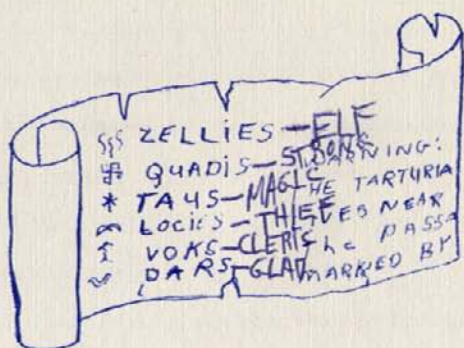 ZELLIES — ELF
QUADIS — STRONG
TAUS — MAGIC
LOCIES — THIEF
VOKS — CLERIC
DARS — GLAD
WARNING:
THE TARTURIA
LIVES NEAR
The PASSA
MARKED BY